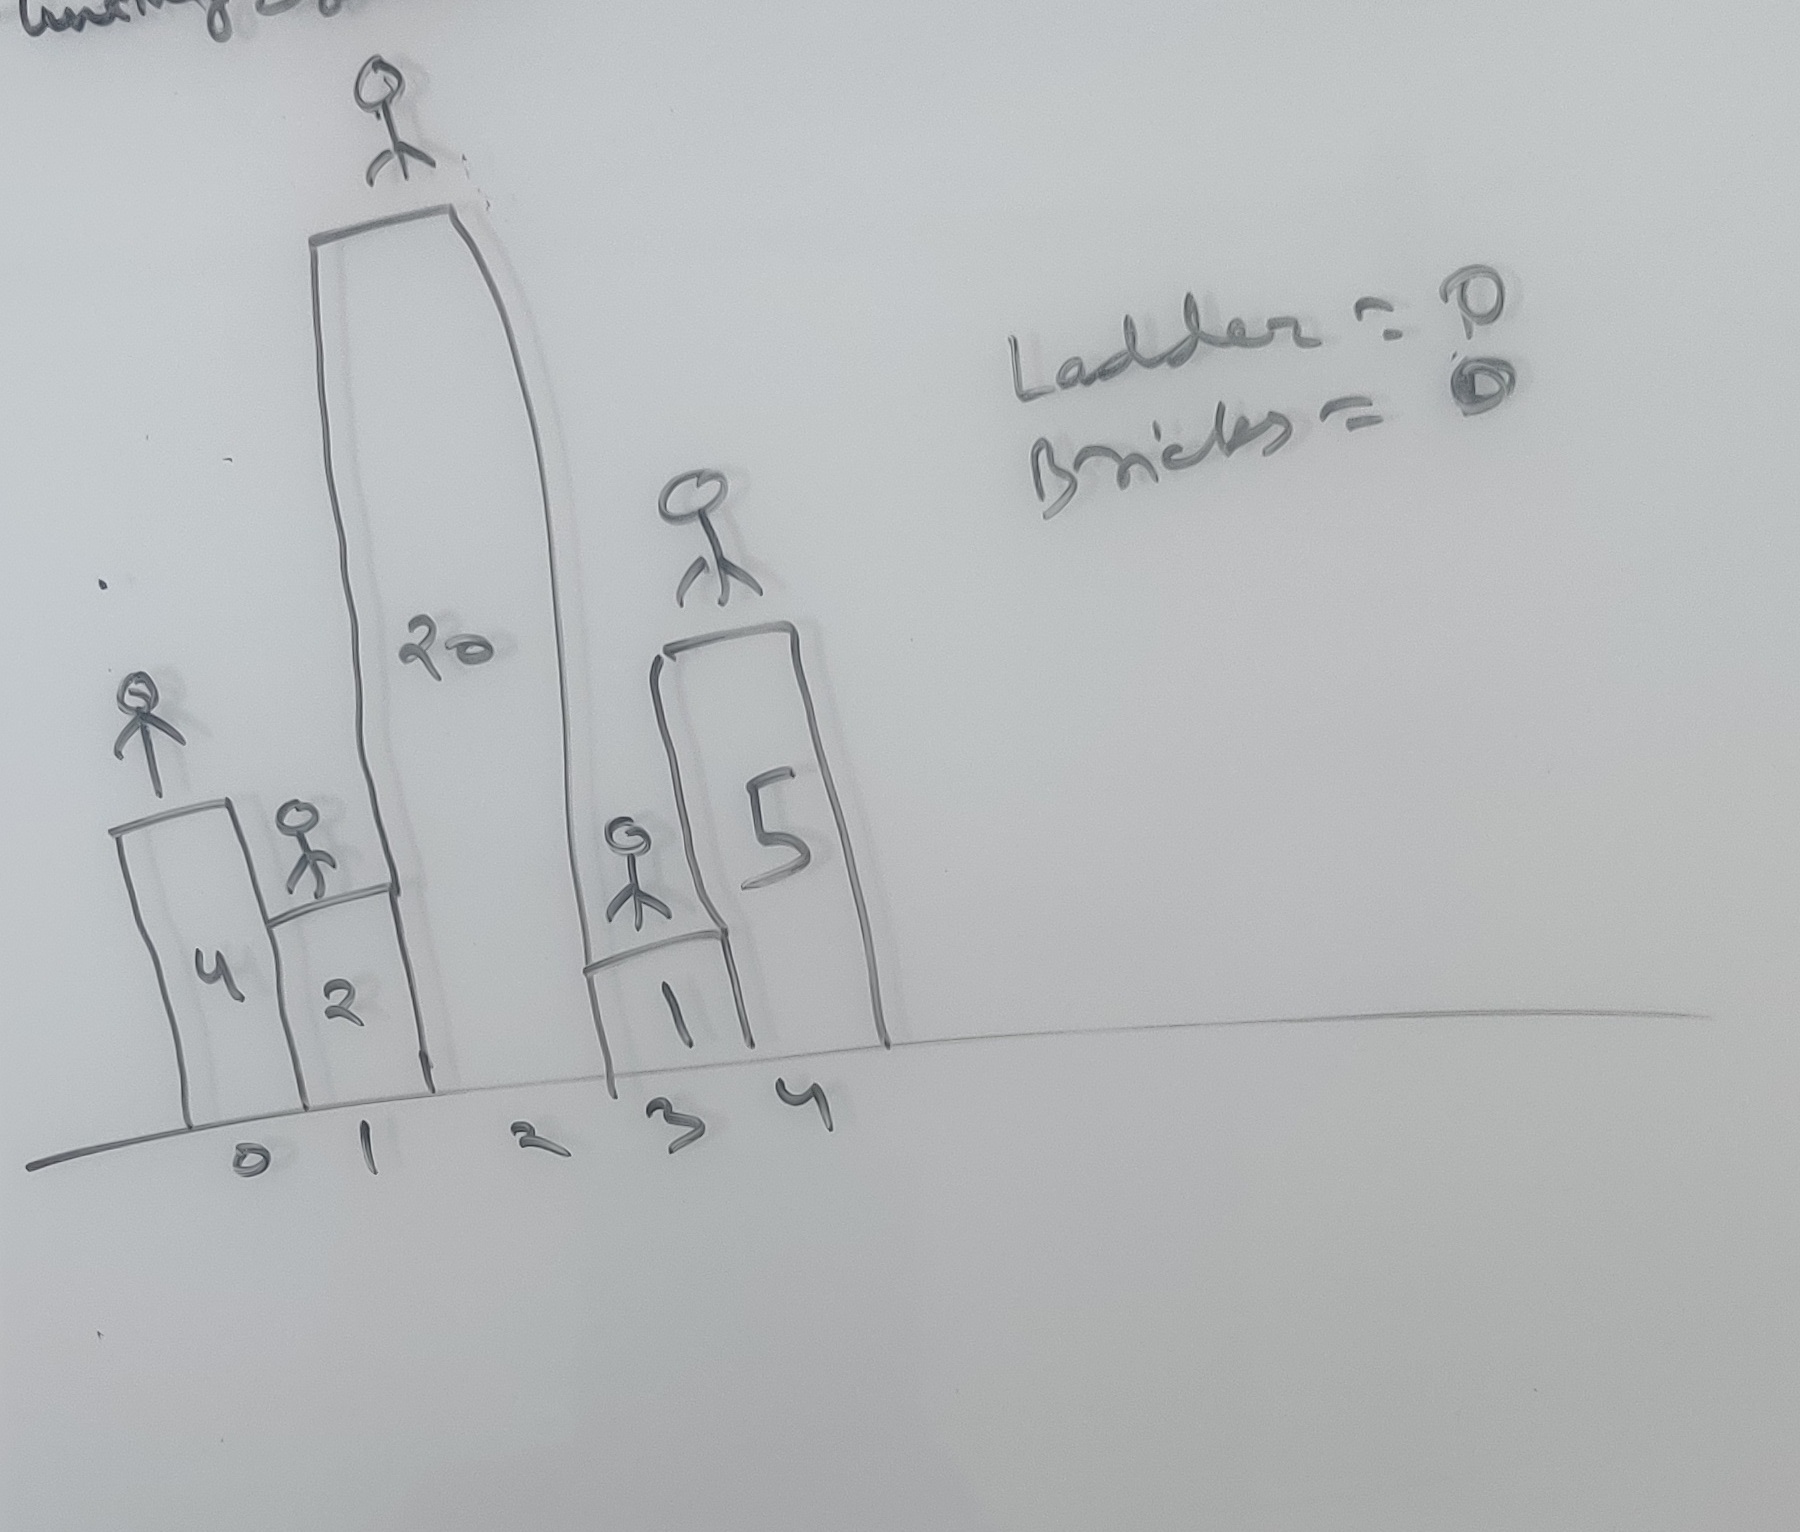 20
Ladder = 0
Bricks = 0
5
4
2
1
0 1 2 3 4